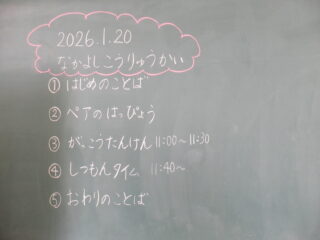 2026.1.20
なかよしこうりゅうかい
① はじめのことば
② ペアのはっぴょう
③ がっこうたんけん 11:00～11:30
④ しつもんタイム 11:40～
⑤ おわりのことば